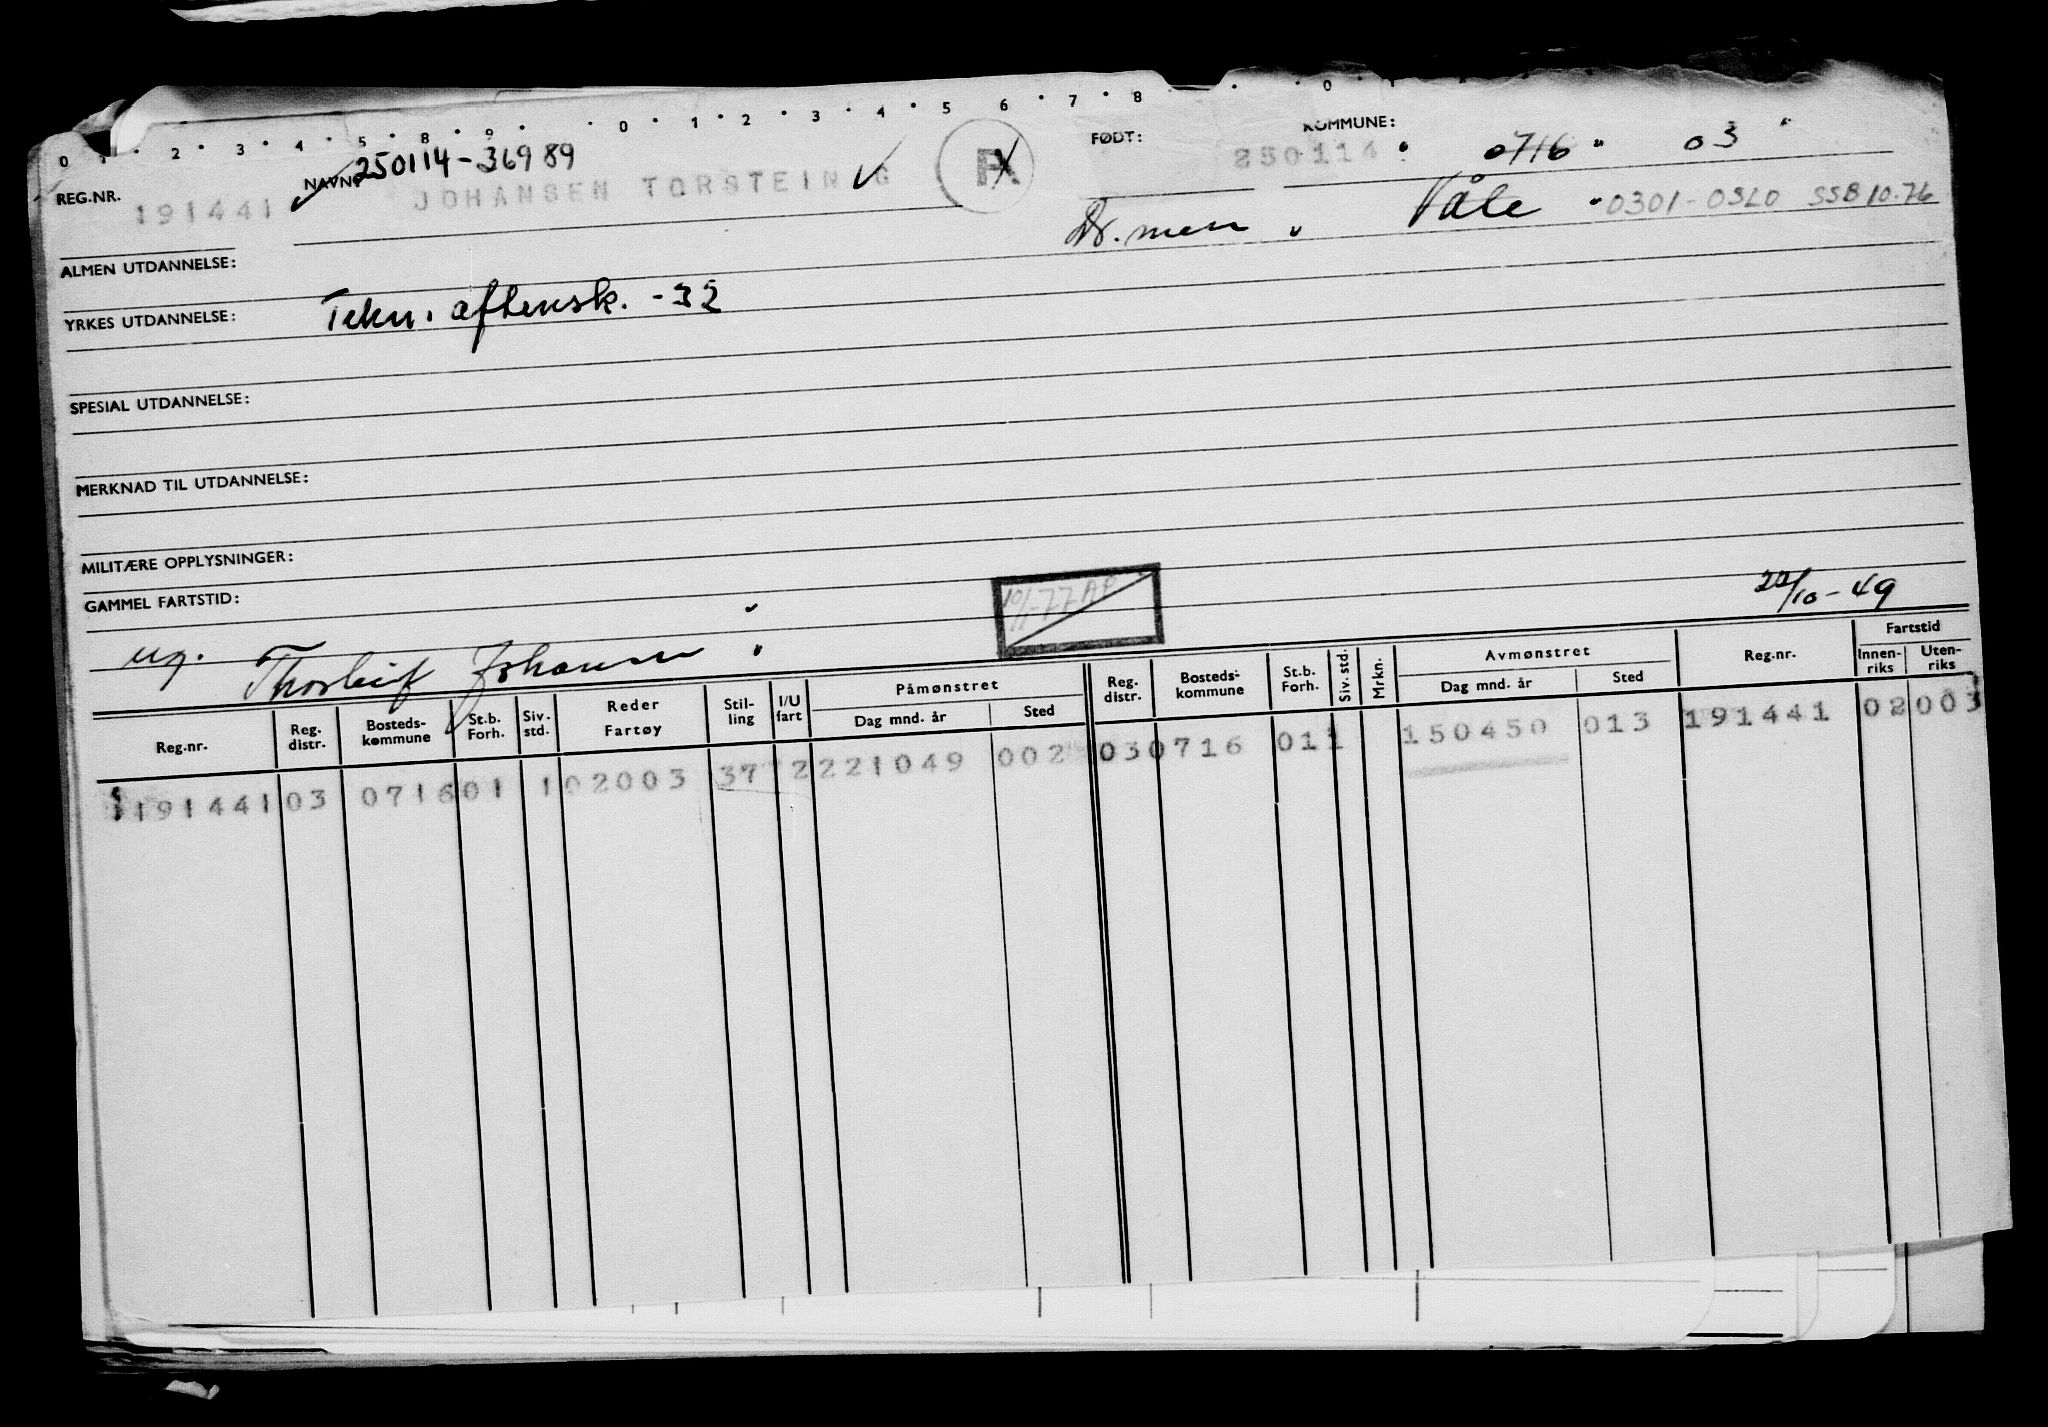 0 1 2 3 4 5 8 9 0 1 2 3 4 5 6 7 8 0 1
REG.NR. 191441 NAVN: 250114-36989 FØDT: 250114 KOMMUNE: 0716 03
JOHANSEN TORSTEIN G R
Dr.men Våle 0301-OSLO SSB 10.76
ALMEN UTDANNELSE:
YRKES UTDANNELSE: Tekn. aftensk. -32
SPESIAL UTDANNELSE:
MERKNAD TIL UTDANNELSE:
MILITÆRE OPPLYSNINGER:
GAMMEL FARTSTID:
22/10-49
ug. Thorleif Johansen
Reg.nr. Reg. distr. Bosteds- kommune St.b. Forh. Siv. std. Reder Fartøy Stil- ling I/U fart Påmønstret Dag mnd. år Sted Reg. distr. Bosteds- kommune St.b. Forh. Siv. std. Mrkn. Avmønstret Dag mnd. år Sted Reg.nr. Fartstid Innen- riks Uten- riks
191441 03 0716 01 1 02003 37 2 221049 002 03 0716 01 1 150450 013 191441 02 003